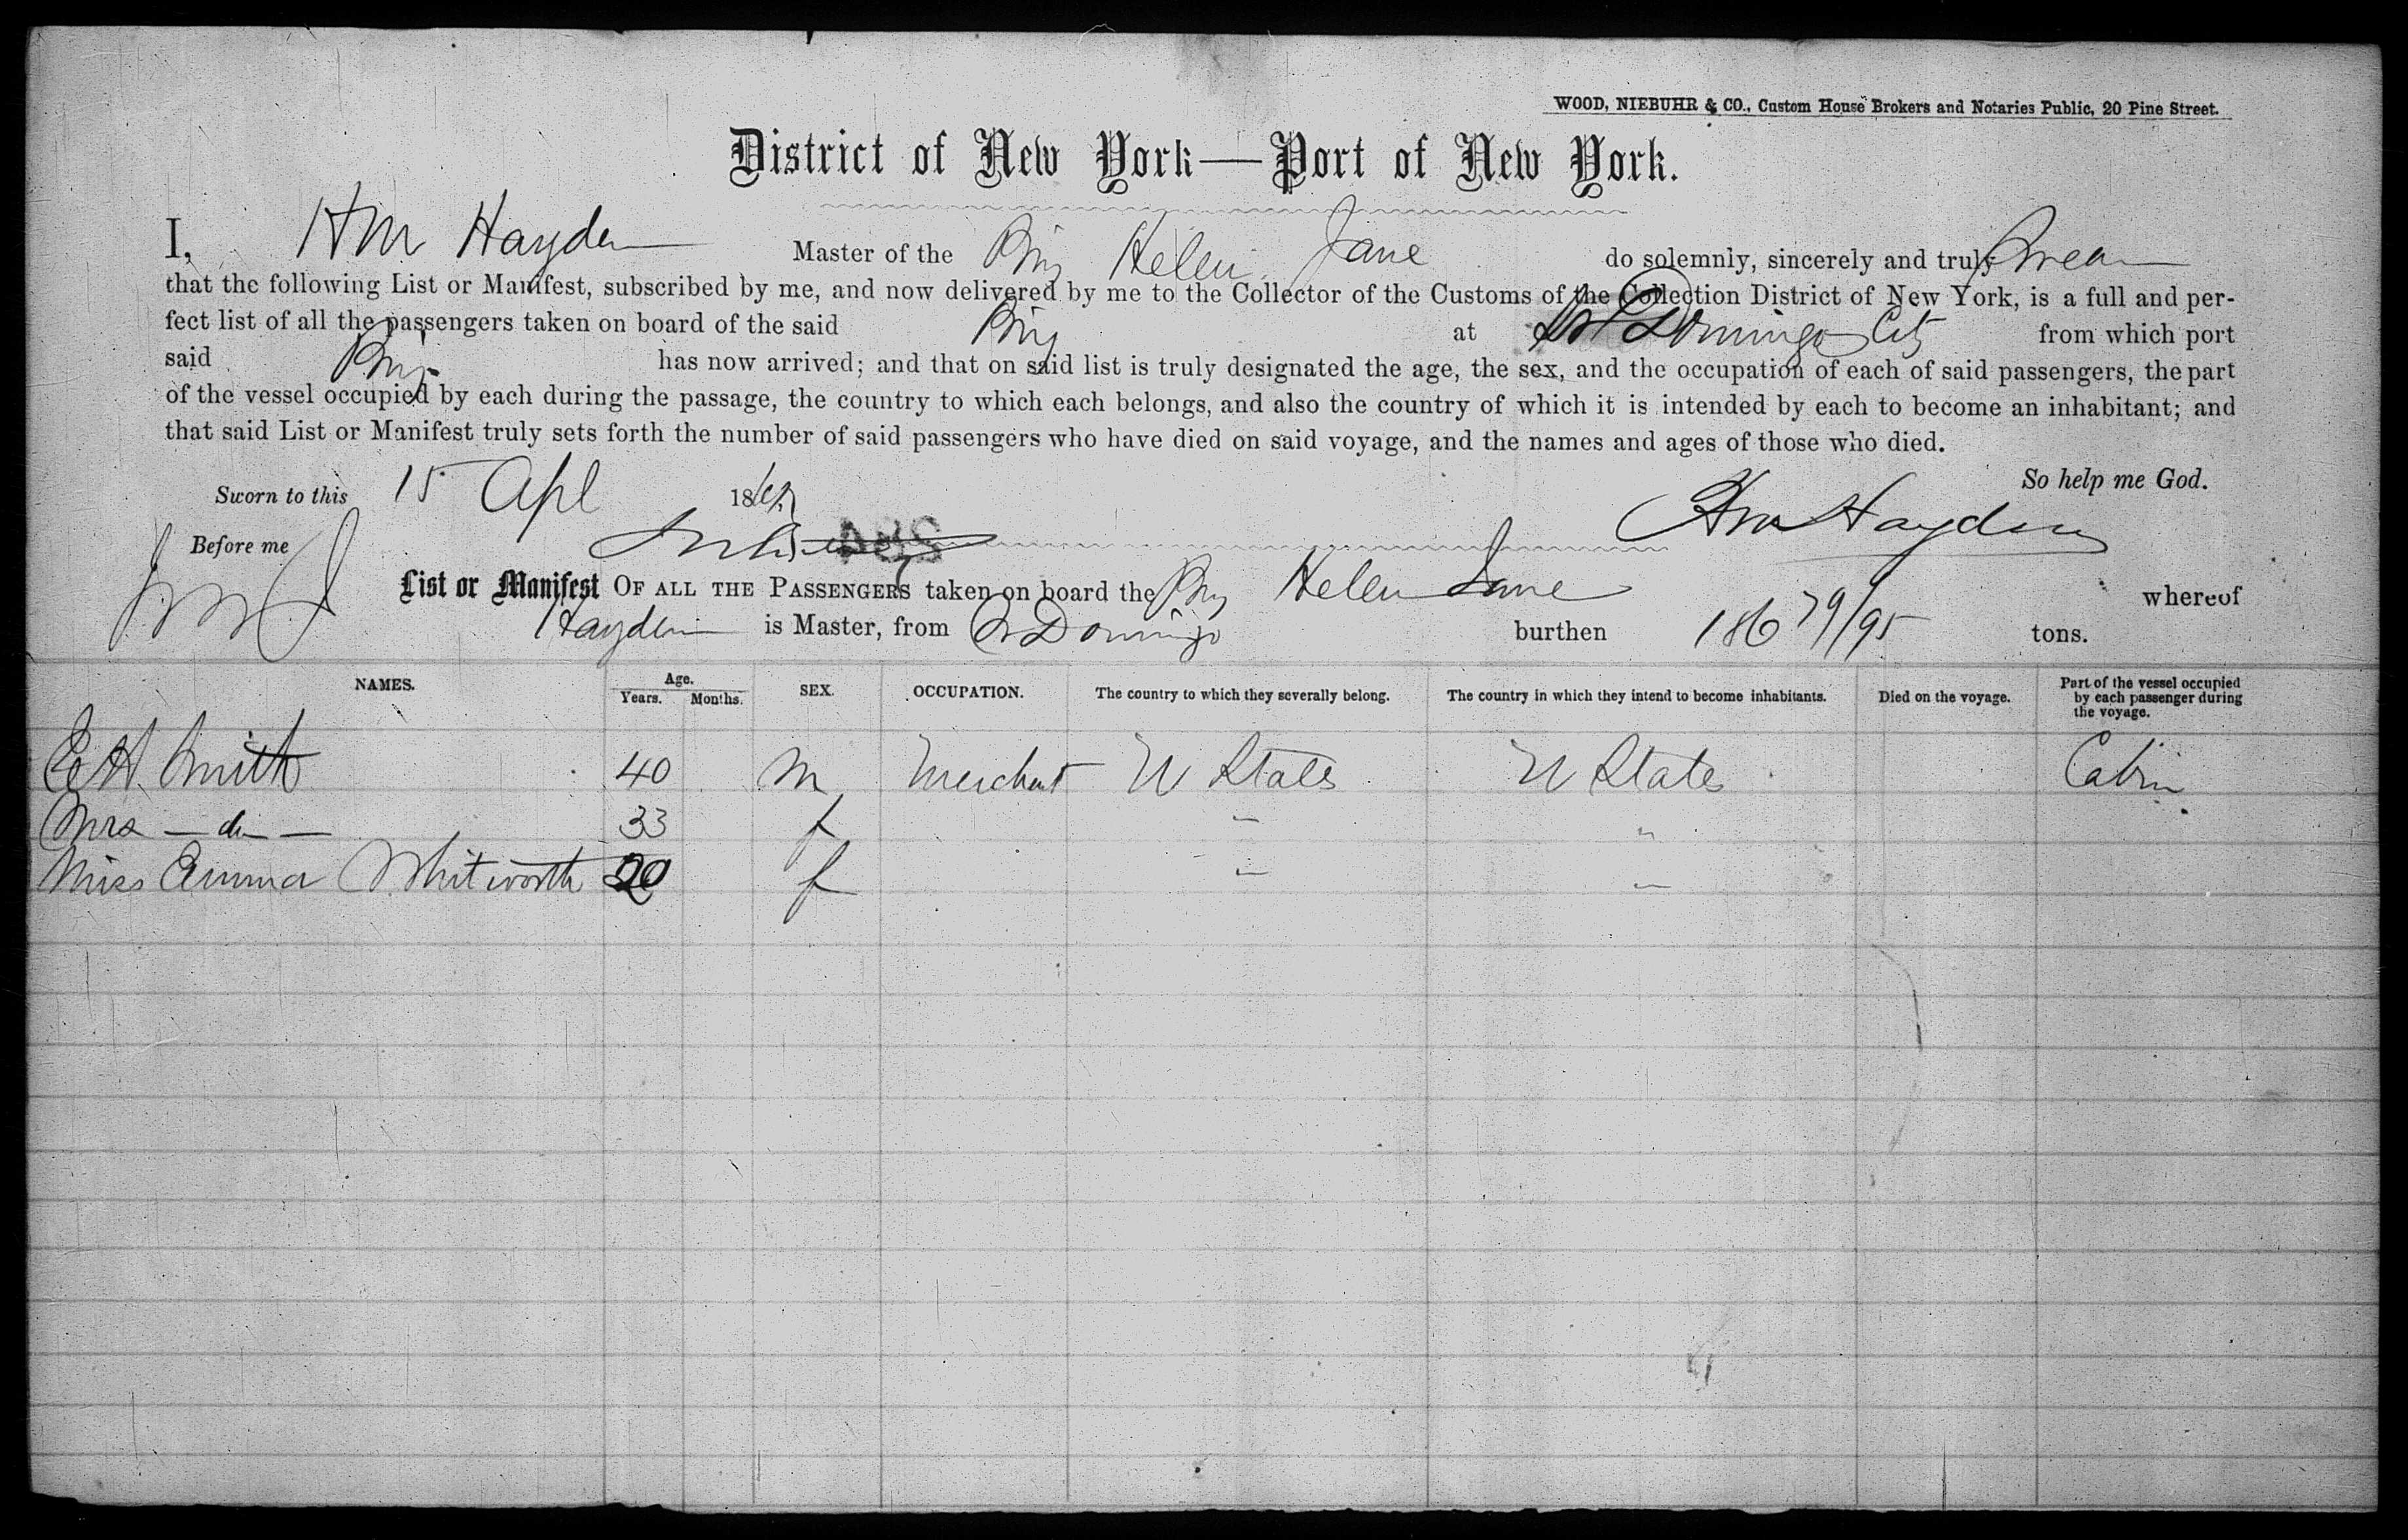 WOOD, NIEBUHR & CO., Custom House Brokers and Notaries Public, 20 Pine Street.
District of New York—Port of New York.
I, HM Hayden Master of the Brig Helen Jane do solemnly, sincerely and truly Swear
that the following List or Manifest, subscribed by me, and now delivered by me to the Collector of the Customs of the Collection District of New York, is a full and per-
fect list of all the passengers taken on board of the said Brig at St Domingo City from which port
said Brig has now arrived; and that on said list is truly designated the age, the sex, and the occupation of each of said passengers, the part
of the vessel occupied by each during the passage, the country to which each belongs, and also the country of which it is intended by each to become an inhabitant; and
that said List or Manifest truly sets forth the number of said passengers who have died on said voyage, and the names and ages of those who died.
So help me God.
Sworn to this 15 Apl 186
HM Hayden
Before me
List or Manifest OF ALL THE PASSENGERS taken on board the Brig Helen Jane whereof
Hayden is Master, from St Domingo burthen 186 79/95 tons.
NAMES. Age. Years. Months. SEX. OCCUPATION. The country to which they severally belong. The country in which they intend to become inhabitants. Died on the voyage. Part of the vessel occupied by each passenger during the voyage.
H. Smith 40 M Merchant U States U States Cabin
Mrs — do — 33 f " "
Miss Emma Whitworth 20 f " "